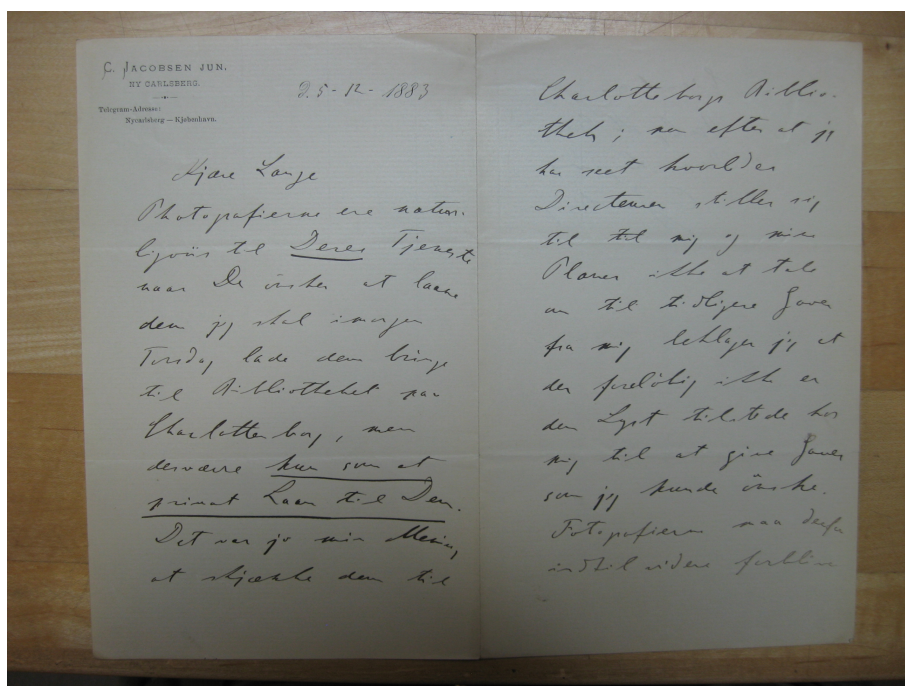 C. JACOBSEN JUN.
NY CARLSBERG.
Telegram-Adresse:
Nycarlsberg — Kjøbenhavn.
D. 5-12-1883
Kjære Lange
Photografierne ere natur-
ligviis til Deres Tjeneste
naar De ønsker at laane
dem jeg skal imorgen
Torsdag lade dem bringe
til Bibliotheket paa
Charlottenborg, men
desværre kun som et
privat Laan til Dem.
Det var jo min Mening
at skjænke dem til
Charlottenborgs Biblio-
thek; men efter at jeg
har seet hvorledes
Directeuren stiller sig
til mig og mine
Planer ikke at tale
om til tidligere Gaver
fra mig beklager jeg at
der foreløbig ikke er
den Lyst tilstede hos
mig til at give Gaver
som jeg kunde ønske.
Fotografierne maa derfor
indtil videre forblive